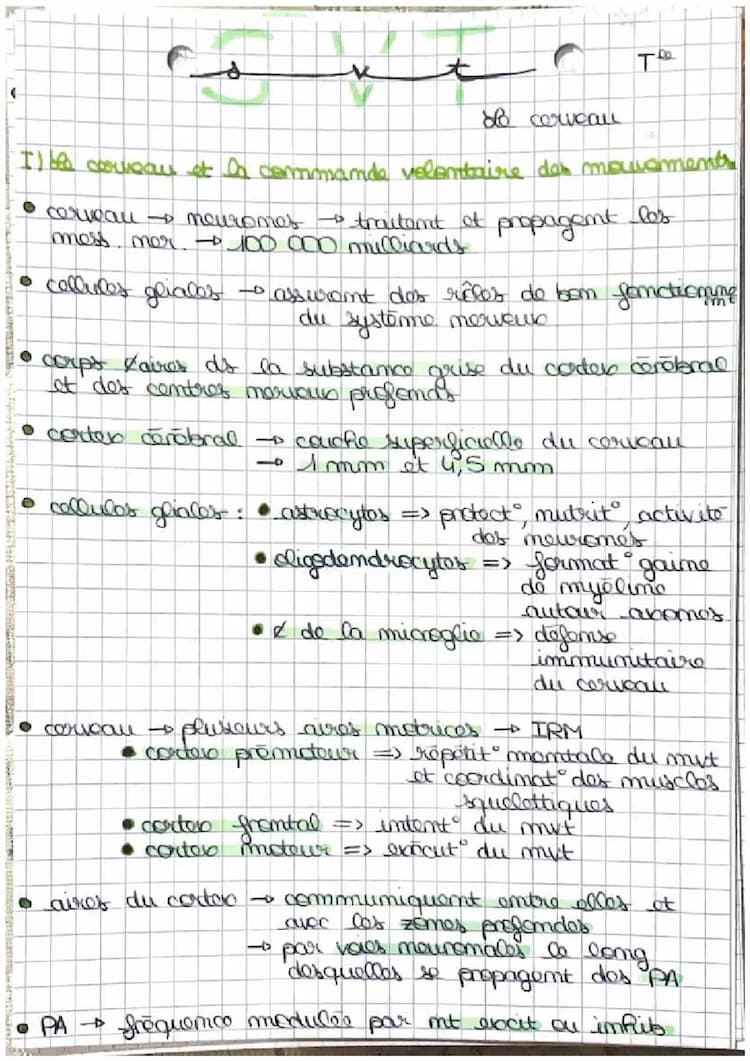 SVT
s v t
Tle
Le cerveau
I) Le cerveau et la commande volontaire des mouvements
• cerveau → neurones → traitant et propageant les
mess. ner. → 100 000 milliards
• cellules gliales → assurant des rôles de bon fonctionne
ment
du système nerveux
• corps ȼaires ds la substance grise du cortex cérébral
et des centres nerveux profonds
• cortex cérébral → couche superficielle du cerveau
→ 1 mm et 4,5 mm
• cellules gliales : • astrocytes => protect°, nutrit°, activité
des neurones
• oligodendrocytes => format° gaine
de myéline
autour axones
• ȼ de la microglie => défense
immunitaire
du cerveau
• cerveau → plusieurs aires motrices → IRM
• cortex prémoteur => répétit° mentale du mvt
et coordinat° des muscles
squelettiques
• cortex frontal => intent° du mvt
• cortex moteur => exécut° du mvt
• aires du cortex → communiquent entre elles et
avec les zones profondes
→ par voies neuronales le long
desquelles se propagent des PA
• PA → fréquence modulée par mt excit ou inhib